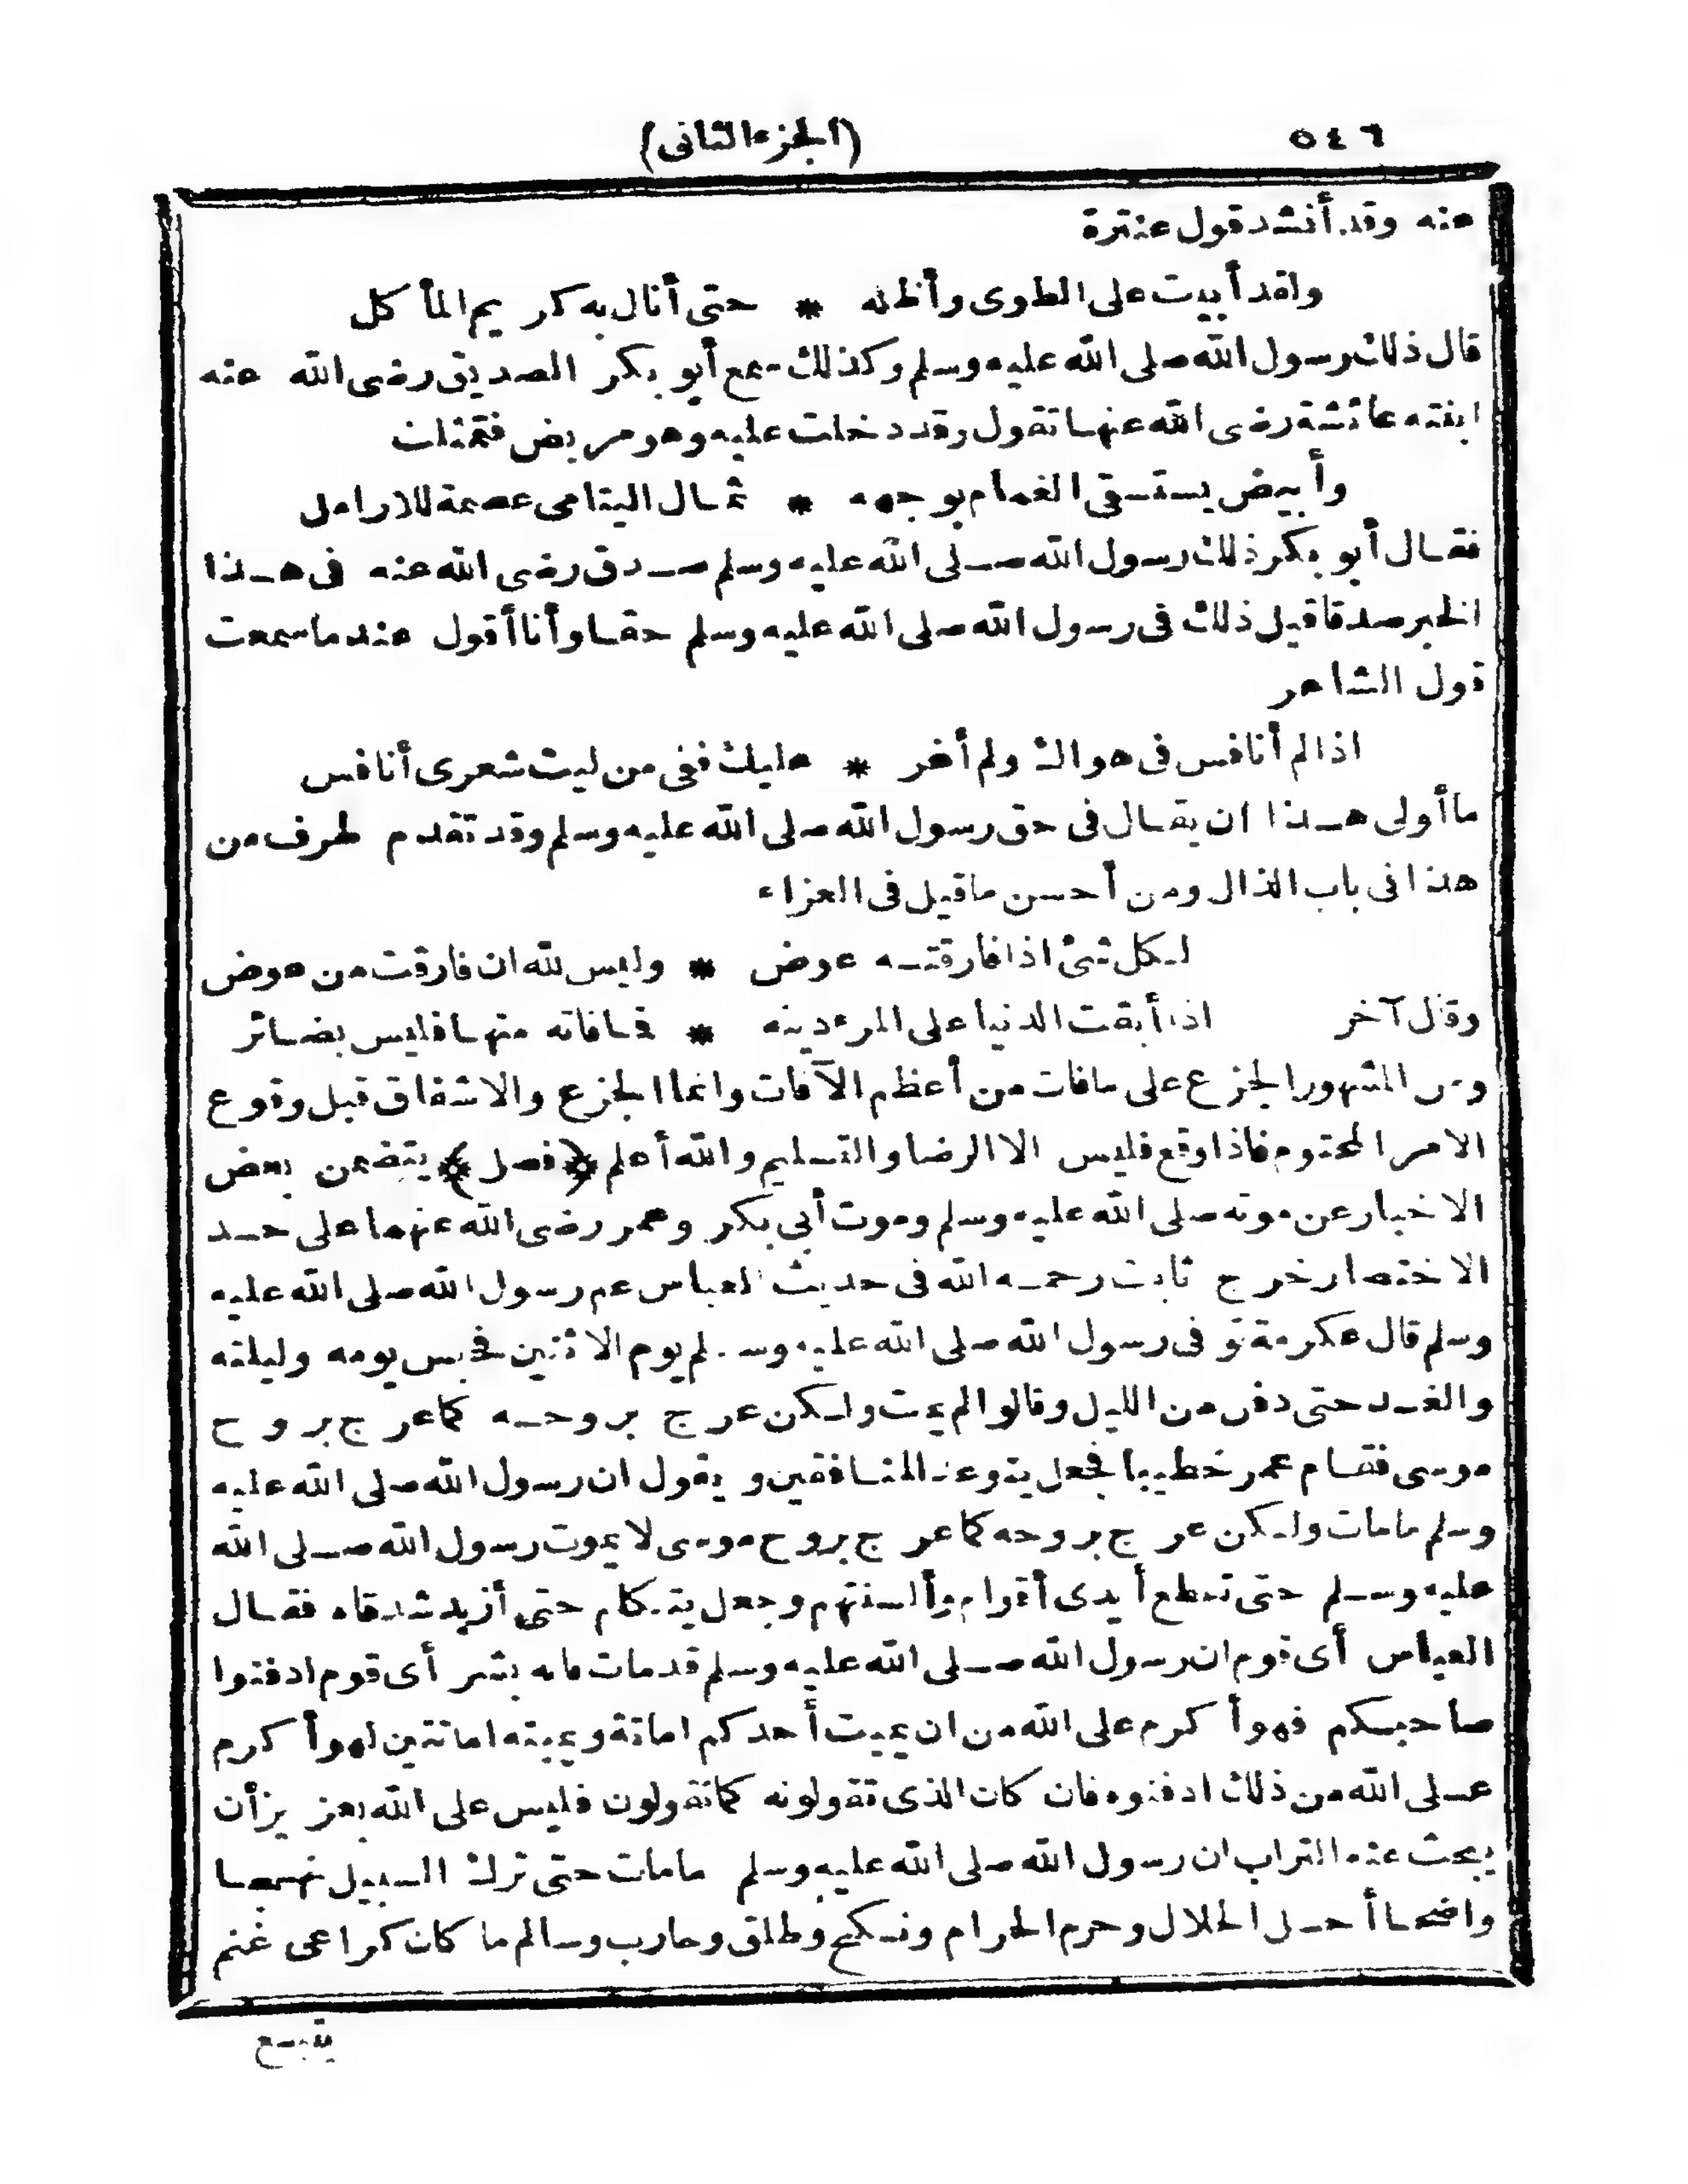 ٥٤٦
(الجزء الثاني)
عنه وقد أنشد قول عنترة
ولقد أبيت على الطوى وأظله * حتى أنال به كريم المأكل
قال ذلك رسول الله صلى الله عليه وسلم وكذلك سمع أبو بكر الصديق رضى الله عنه
ابنته عائشة رضى الله عنها تقول وقد دخلت عليه وهو مريض فتمثلت
وأبيض يستسقى الغمام بوجهه * ثمال اليتامى عصمة للارامل
فقال أبو بكر ذلك رسول الله صلى الله عليه وسلم صدق رضى الله عنه فى هذا
الخبر صدقا قيل ذلك فى رسول الله صلى الله عليه وسلم حقا وأنا أقول عندما سمعت
قول الشاعر
اذا لم أنافس فى هواك ولم أغر * عليك ففى من ليت شعرى أنافس
ما أولى هذا ان يقال فى حق رسول الله صلى الله عليه وسلم وقد تقدم طرف من
هذا فى باب الذال ومن أحسن ما قيل فى العزاء
لكل شئ اذا فارقته عوض * وليس لله ان فارقت من عوض
وقال آخر اذا أبقت الدنيا على المرء دينه * فما فاته منها فليس بضائر
ومن المشهور الجزع على ما فات من أعظم الآفات وانما الجزع والاشفاق قبل وقوع
الامر المحتوم فاذا وقع فليس الا الرضا والتسليم والله أعلم ﴿فصل﴾ يتضمن بعض
الاخبار عن موته صلى الله عليه وسلم وموت أبى بكر وعمر رضى الله عنهما على حد
الاختصار خرج ثابت رحمه الله فى حديث العباس عم رسول الله صلى الله عليه
وسلم قال عكرمة توفى رسول الله صلى الله عليه وسلم يوم الاثنين فحبس يومه وليلته
والغد حتى دفن من الليل وقالوا لم يمت ولكن عرج بروحه كما عرج بروح
موسى فقام عمر خطيبا فجعل يتوعد المنافقين ويقول ان رسول الله صلى الله عليه
وسلم ما مات ولكن عرج بروحه كما عرج بروح موسى لا يموت رسول الله صلى الله
عليه وسلم حتى تقطع أيدى أقوام وألسنتهم وجعل يتكلم حتى أزبد شدقاه فقال
العباس أى قوم ان رسول الله صلى الله عليه وسلم قد مات فانه بشر أى قوم ادفنوا
صاحبكم فهو أكرم على الله من ان يميت أحدكم اماتة ويميته اماتتين لهو أكرم
على الله من ذلك ادفنوه فان كان الذى تقولونه كما تقولون فليس على الله بعزيز أن
يبحث عنه التراب ان رسول الله صلى الله عليه وسلم ما مات حتى ترك السبيل نهجا
واضحا أحل الحلال وحرم الحرام ونكح وطلق وحارب وسالم ما كان كراعى غنم
يتبع